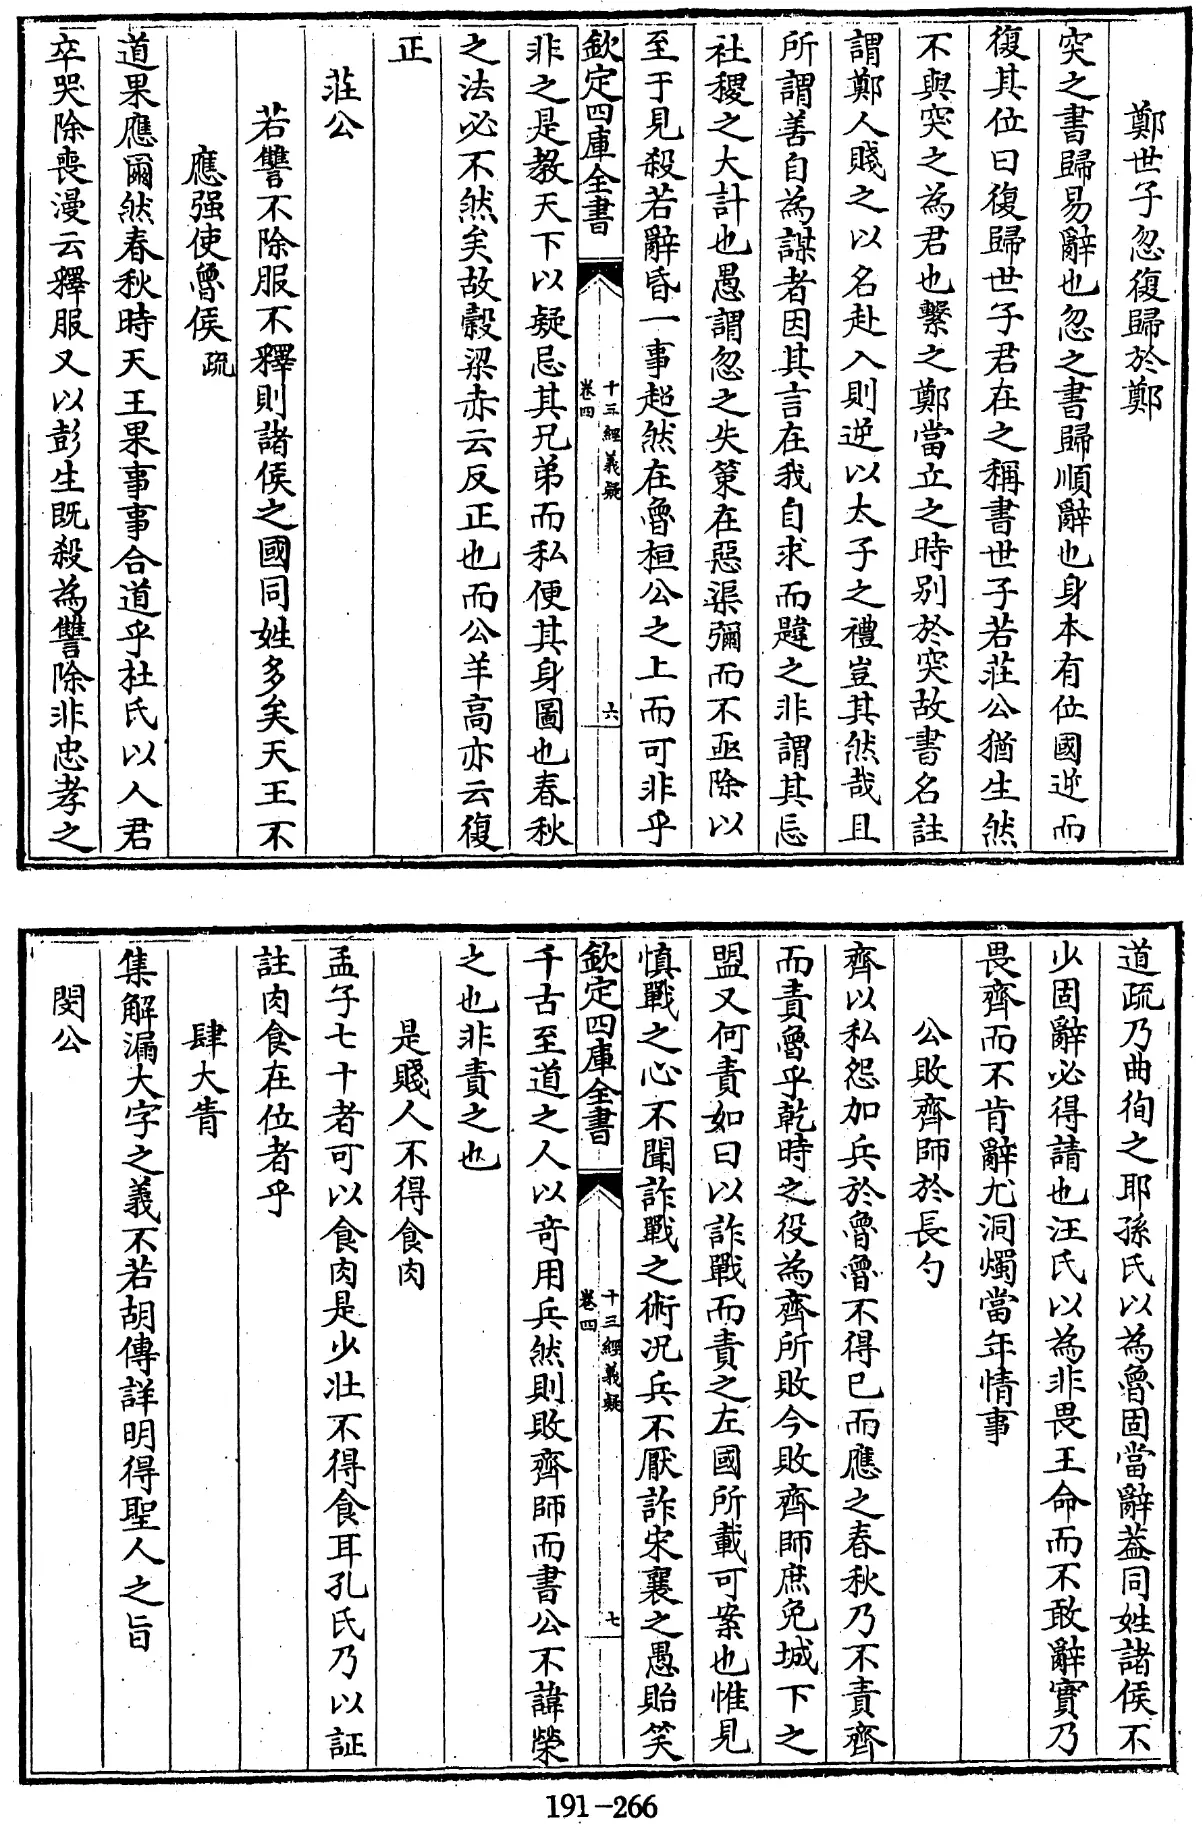 鄭世子忽復歸於鄭
突之書歸易辭也忽之書歸順辭也身本有位國逆而
復其位曰復歸世子君在之稱書世子若莊公猶生然
不與突之為君也繫之鄭當立之時别於突故書名註
謂鄭人賤之以名赴入則逆以太子之禮豈其然哉且
所謂善自為謀者因其言在我自求而韙之非謂其忘
社稷之大計也愚謂忽之失策在惡渠彌而不亟除以
至于見殺若辭昏一事超然在魯桓公之上而可非乎
欽定四庫全書
十三經義疑
卷四
六
非之是教天下以疑忌其兄弟而私便其身圖也春秋
之法必不然矣故穀梁赤云反正也而公羊高亦云復
正
莊公
若讐不除服不釋則諸侯之國同姓多矣天王不
應强使魯侯疏
道果應爾然春秋時天王果事事合道乎杜氏以人君
卒哭除喪漫云釋服又以彭生既殺為讐除非忠孝之
道疏乃曲徇之耶孫氏以為魯固當辭葢同姓諸侯不
少固辭必得請也汪氏以為非畏王命而不敢辭實乃
畏齊而不肯辭尤洞燭當年情事
公敗齊師於長勺
齊以私怨加兵於魯魯不得已而應之春秋乃不責齊
而責魯乎乾時之役為齊所敗今敗齊師庶免城下之
盟又何責如曰以詐戰而責之左國所載可案也惟見
慎戰之心不聞詐戰之術况兵不厭詐宋襄之愚貽笑
欽定四庫全書
十三經義疑
卷四
七
千古至道之人以奇用兵然則敗齊師而書公不諱榮
之也非責之也
是賤人不得食肉
孟子七十者可以食肉是少壯不得食耳孔氏乃以証
註肉食在位者乎
肆大眚
集解漏大字之義不若胡傳詳明得聖人之旨
閔公
191-266